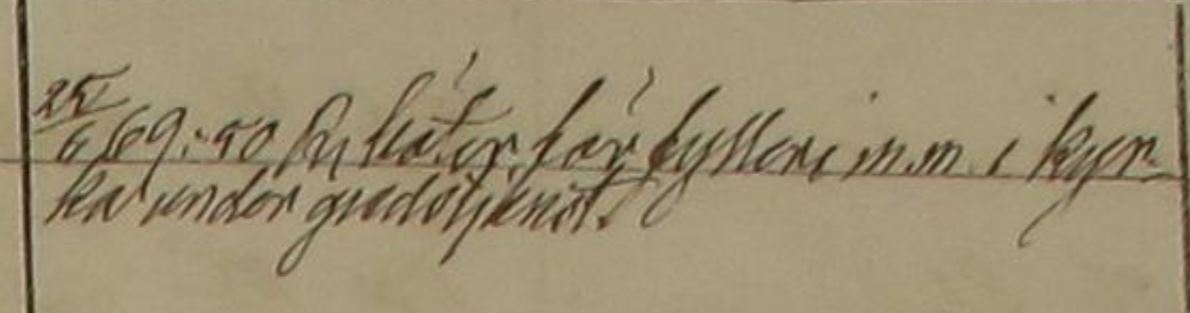 25/6 69: 50 Rd böter för fylleri m.m. i kyr-
ka under gudstjenst.